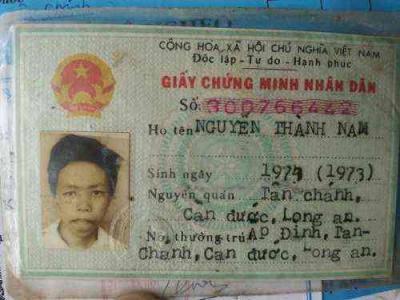 CỘNG HÒA XÃ HỘI CHỦ NGHĨA VIỆT NAM
Độc lập - Tự do - Hạnh phúc
GIẤY CHỨNG MINH NHÂN DÂN
Số 300766442
Họ tên NGUYỄN THÀNH NAM
Sinh ngày 1973 (1973)
Nguyên quán Tân chánh,
Cần đước, Long an.
Nơi thường trú Ấp Đình, Tân-
Chánh, Cần đước, Long an.